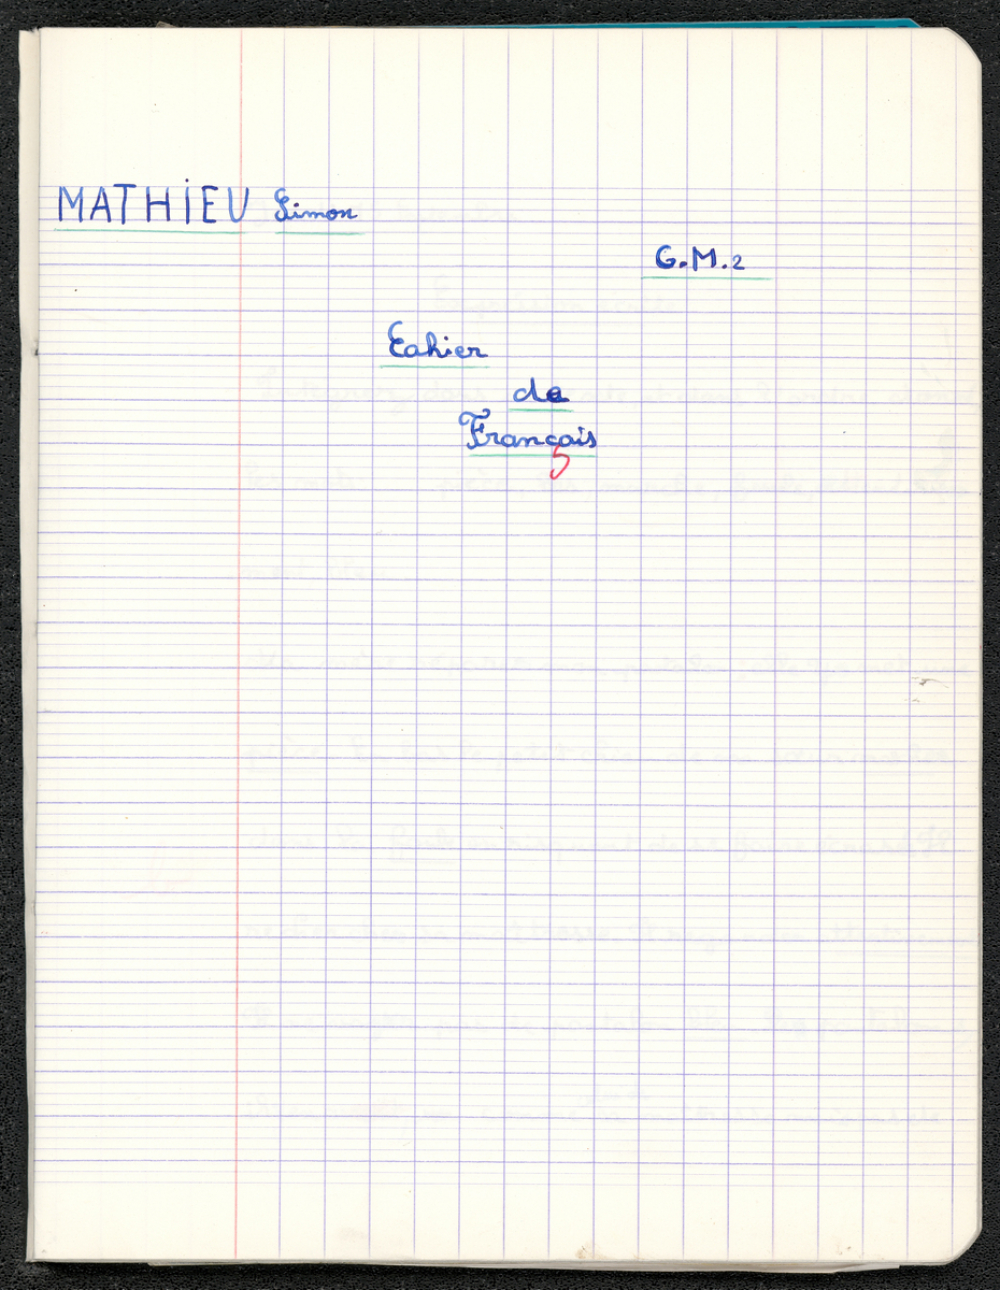 MATHIEU Simon
C.M.2
Cahier
de
Français